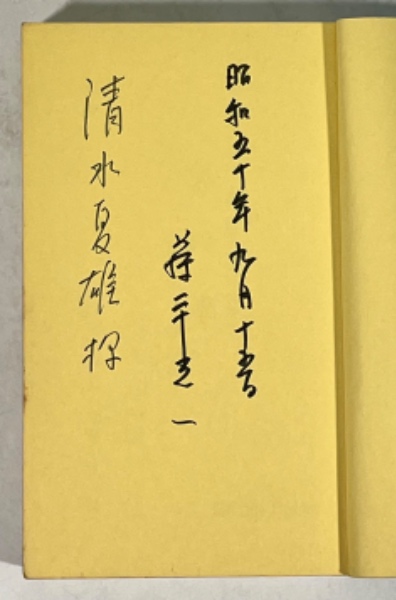 昭和五十年九月十五日
藤平光一
清水夏雄様